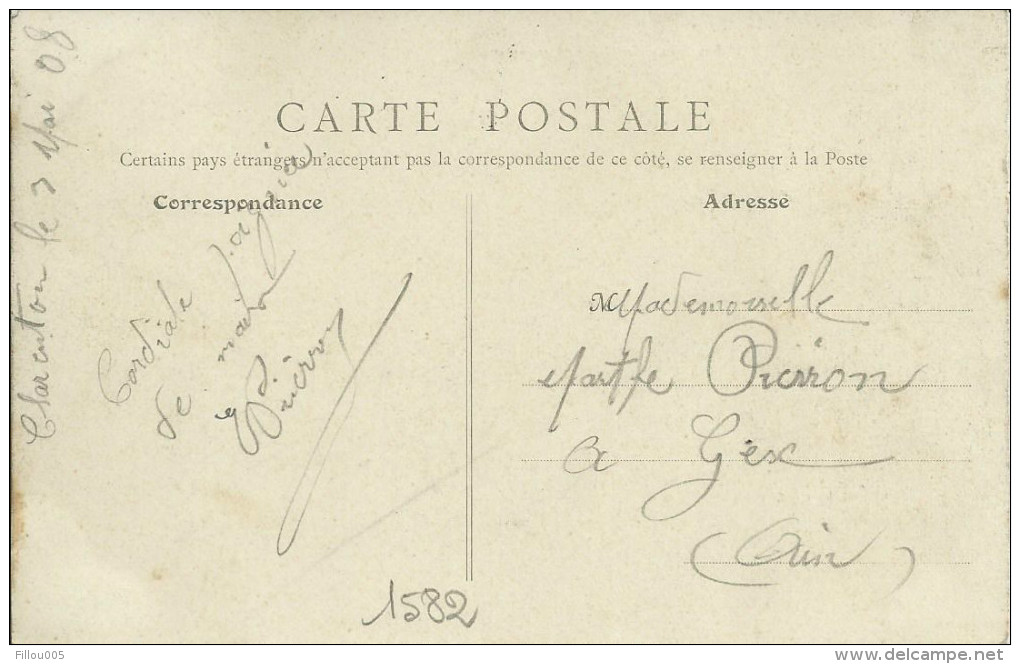 CARTE POSTALE
Certains pays étrangers n'acceptant pas la correspondance de ce côté, se renseigner à la Poste
Correspondance
Adresse
Charenton le 3 Mai 08
Cordiale
de main
Pierron
M Mademoiselle
Marthe Pierron
a Gex
(Ain)
1582
Fillou005
http://www.delcampe.net